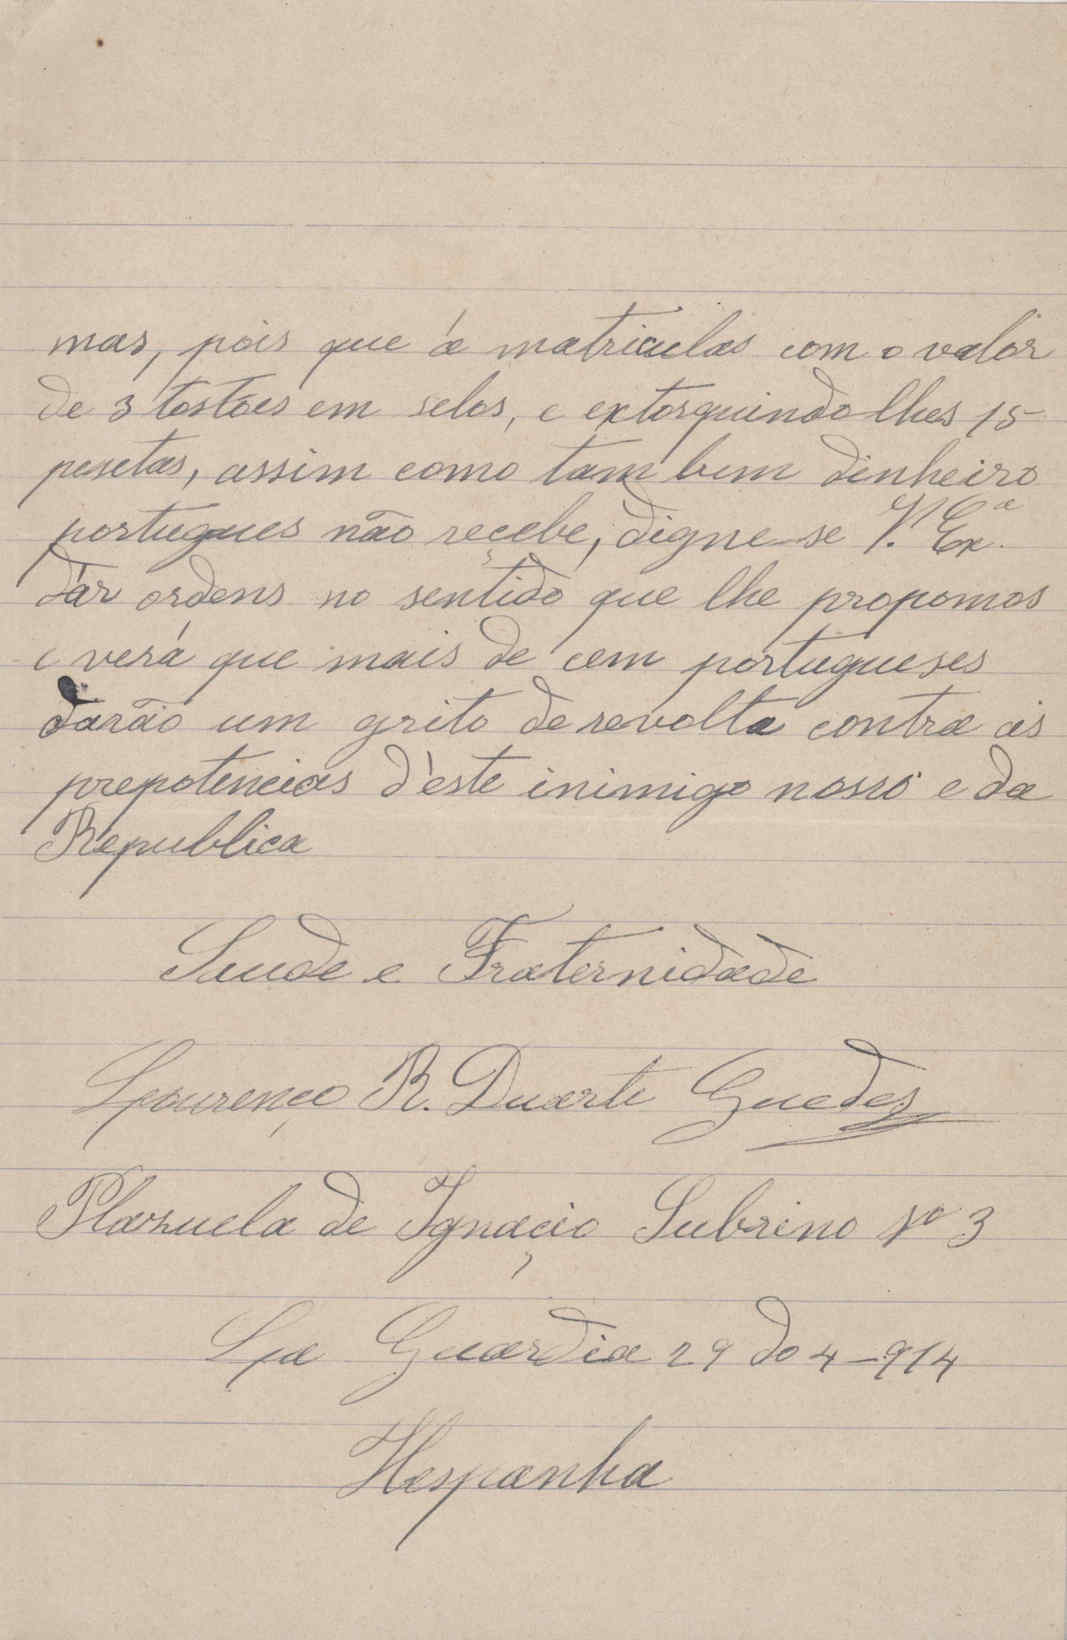 mas, pois que á matriculas com o valor
de 3 tostões em selos, e extorquindo lhes 15
pesetas, assim como tam bem dinheiro
portugues não reçebe, digne-se V. Ex.ª
dár ordens no sentido que lhe propomos
e verá que mais de cem portugueses
darão um grito de revolta contra as
prepotencias d'este inimigo nosso e da
Republica
Saude e Fraternidade
Lourenço R. Duarte Guedes
Plazuela de Ignaçio Subrino Nº 3
La Guardia 29 do 4-914
Hespanha